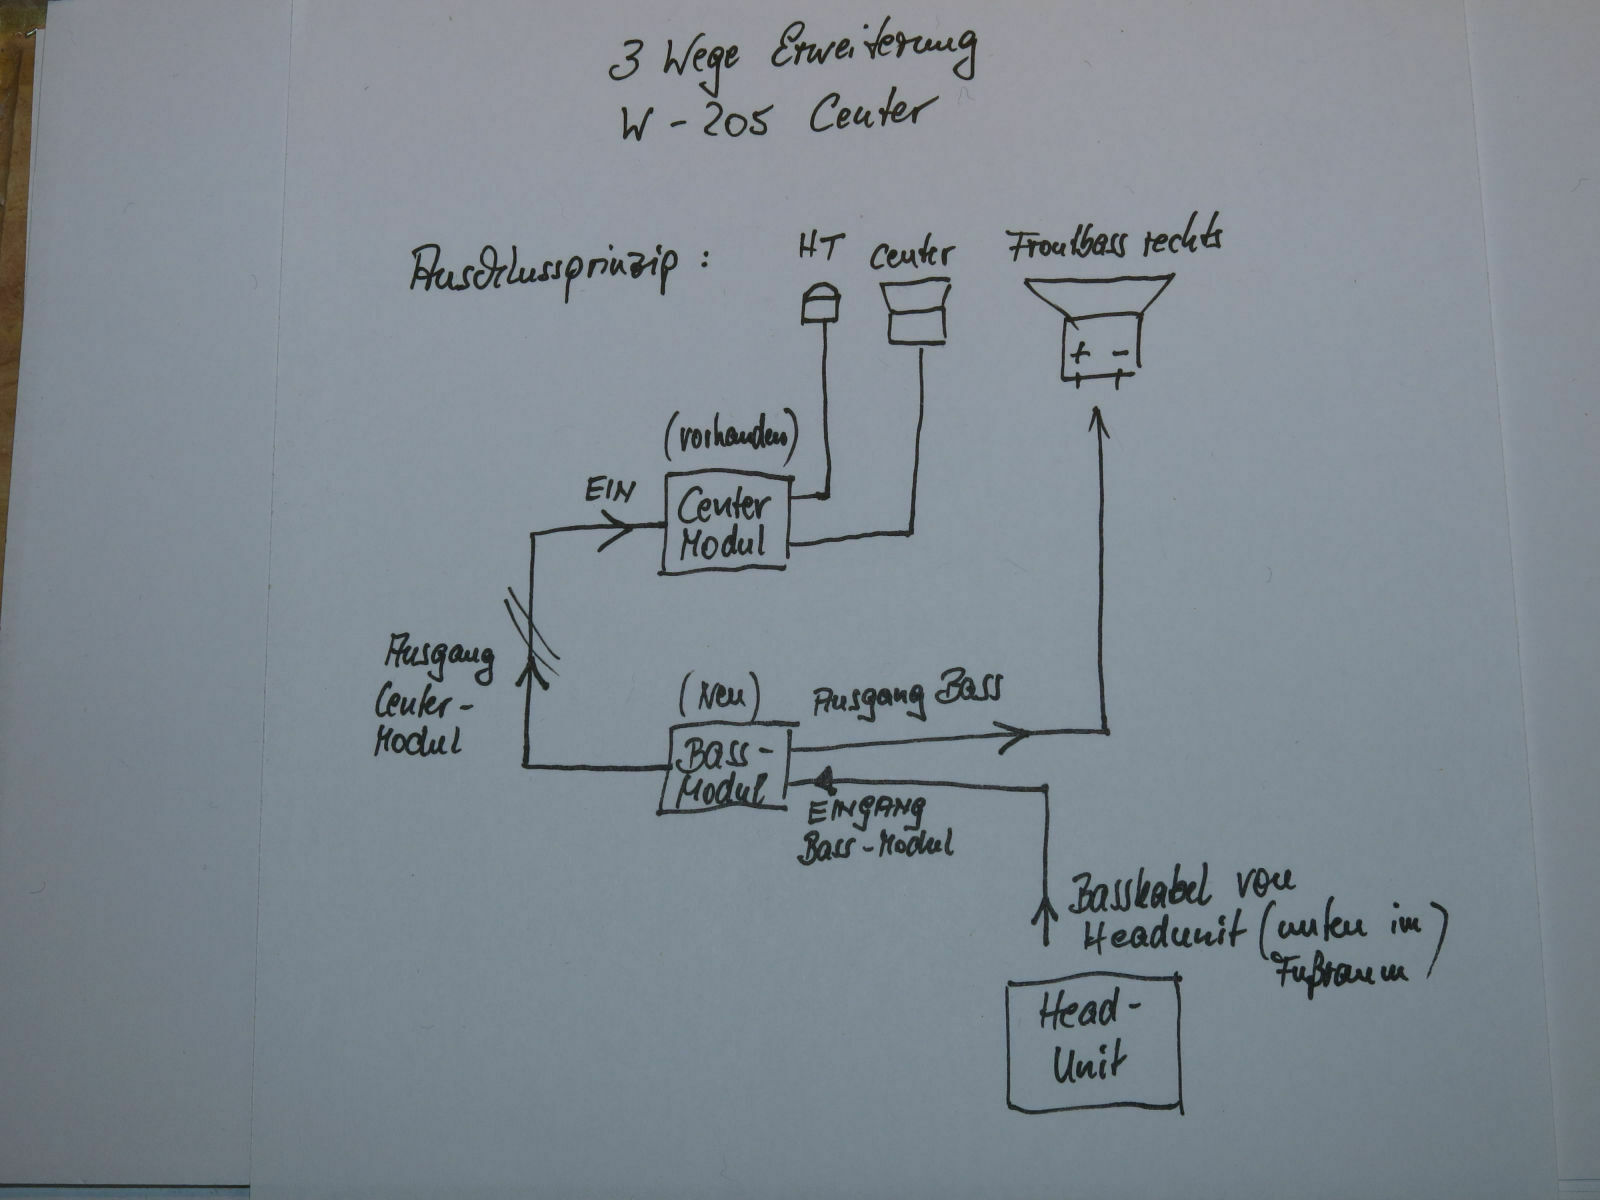 3 Wege Erweiterung
W - 205 Center
Anschlussprinzip :
HT
Center
Frontbass rechts
+ -
(vorhanden)
EIN
Center
Modul
Ausgang
Center-
Modul
(Neu)
Ausgang Bass
Bass-
Modul
EINGANG
Bass-Modul
Basskabel von
Headunit (unten im
Fußraum)
Head-
Unit